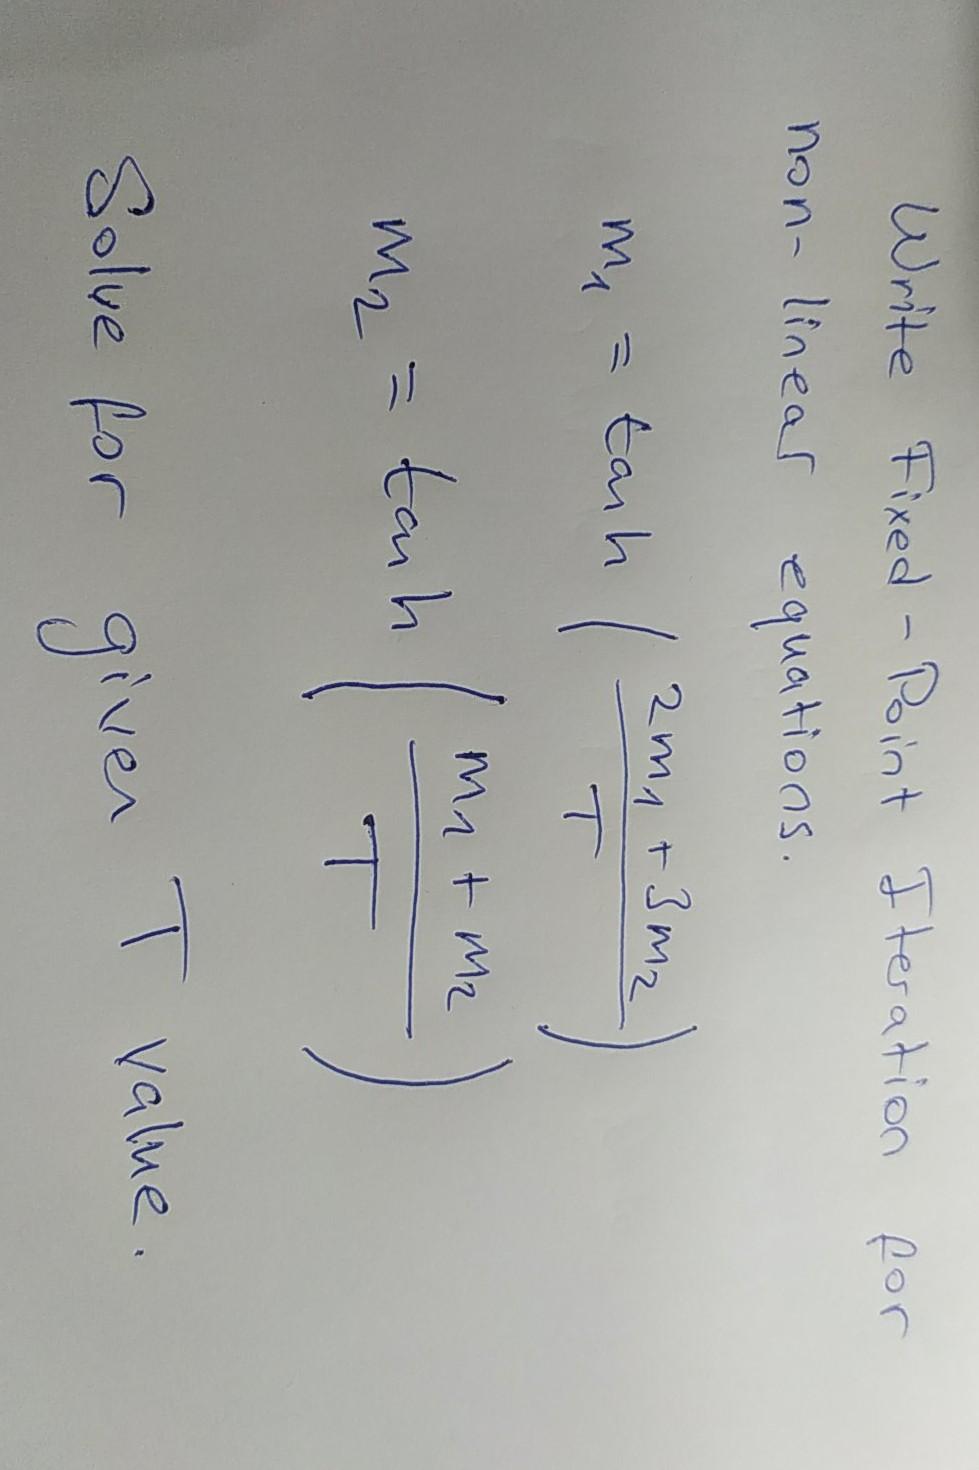 Write Fixed-Point Iteration for
non-linear equations.
m₁ = tanh (2m₁ + 3m₂ / T)
m₂ = tanh (m₁ + m₂ / T)
Solve for given T value.